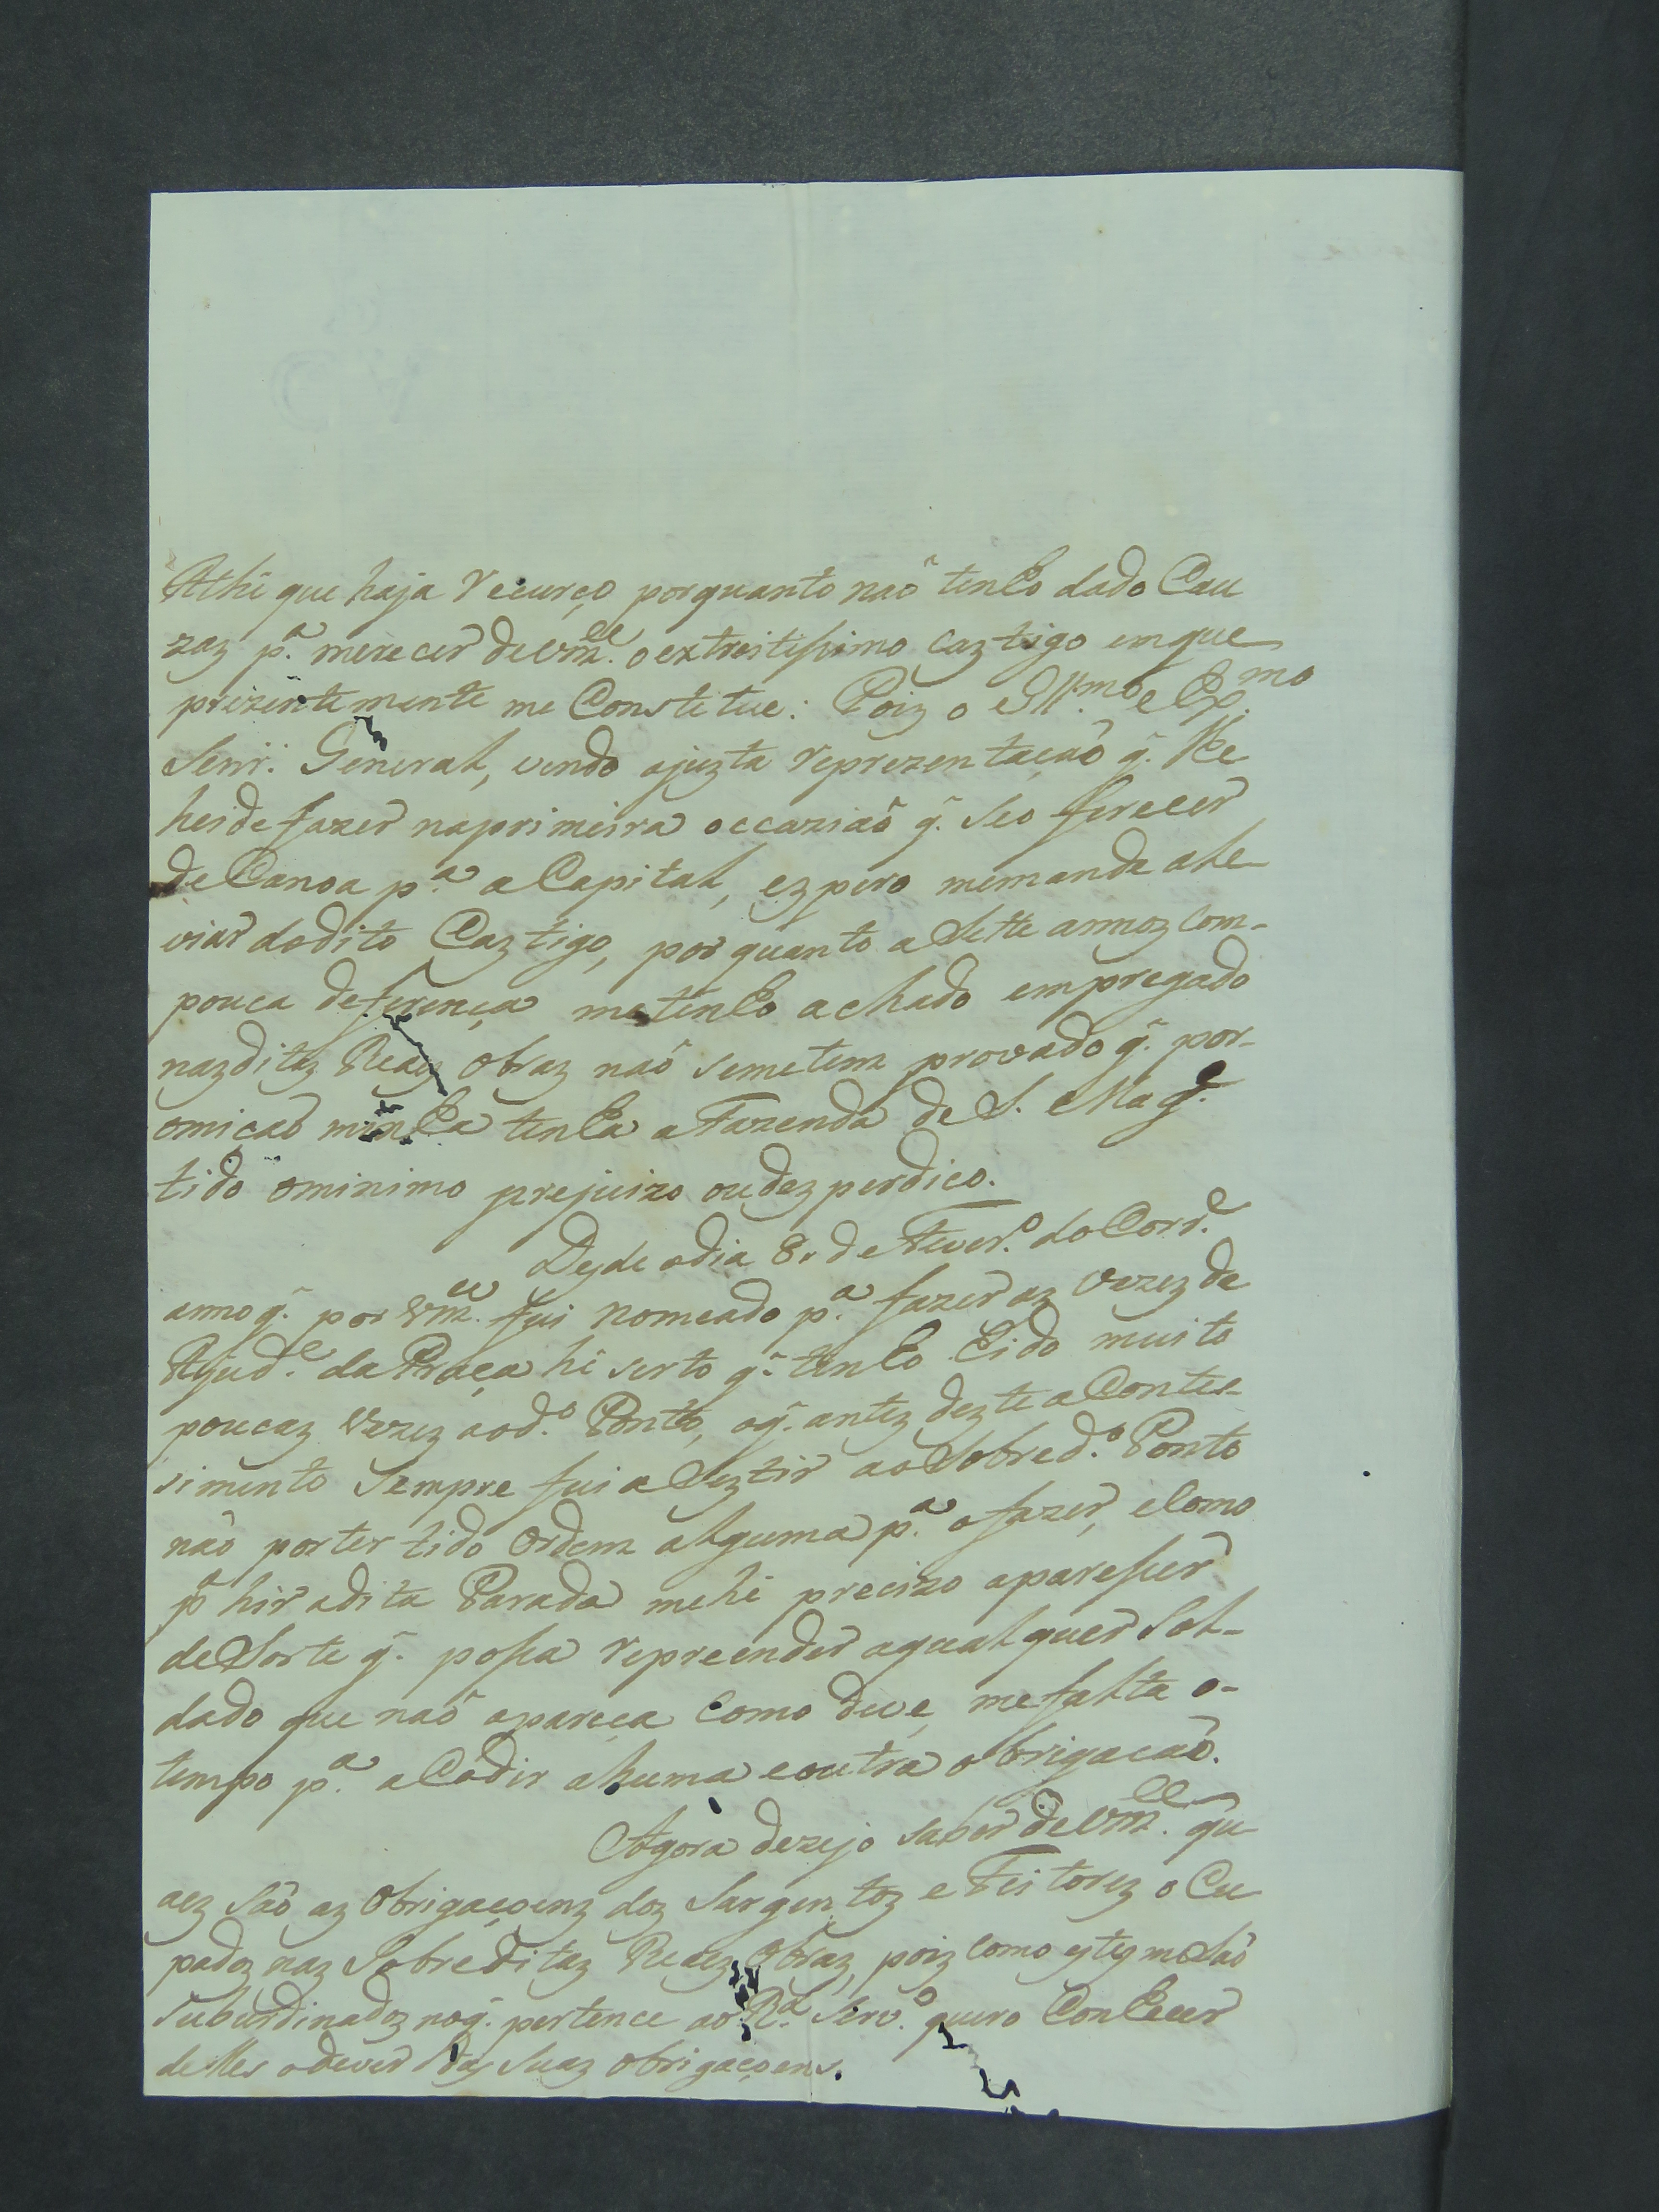 Athé que haja recurço, porquanto naõ tenho dado Cau
zaz p.ª merecer devm.ce o extreitissimo Caztigo emque
prezentemente me Constetue: Poiz o Ill.mo e Ex.mo
Senr. General, vendo ajuzta reprezentaçaõ q̃. lhe
heide fazer naprimeira occaziaõ q̃. seo ferecer
de Canoa p.ª a Capital, ezpero memande ale
viar dodito Caztigo, por quanto a Sette annoz com-
pouca deferença metenho achado empregado
nazditaz Reaez obraz naõ semetem provado q̃. por-
omicaõ minha tenha a Fazenda de S. Mag.e
tido ominimo prejuizo oudezperdico.
Desde odia 8. de Fever.º do Corr.e
anno q̃. por vm.ce fui nomeado p.ª fazer az vezez de
Ajud.e da Praça hé serto q̃. tenho hido muito
poucaz vezez aod.º Ponto, oq̃. antez dezte aConte-
simento sempre fui aSeztir aoSobred.º Ponto
naõ porter tido ordem alguma p.ª ofazer, eComo
p.ª hir adita Parada mehé precizo aparesser
deSorte q̃. possa repreender aqualquer Sol-
dado que naõ apareça Como deve, mefalta o-
tempo p.ª aCodir ahuma eoutra obrigacaõ.
Agora dezejo saber devm.ce qu
aez Saõ az obrigaçoenz doz Sargentoz e Feitorez oCu
padoz naz Sobreditaz Reaez Obraz, poiz Como estes meSaõ
Suburdinadoz noq̃. pertence ao R.l Serv.º quero Conhecer
delles odever das Suaz obrigaçoens.